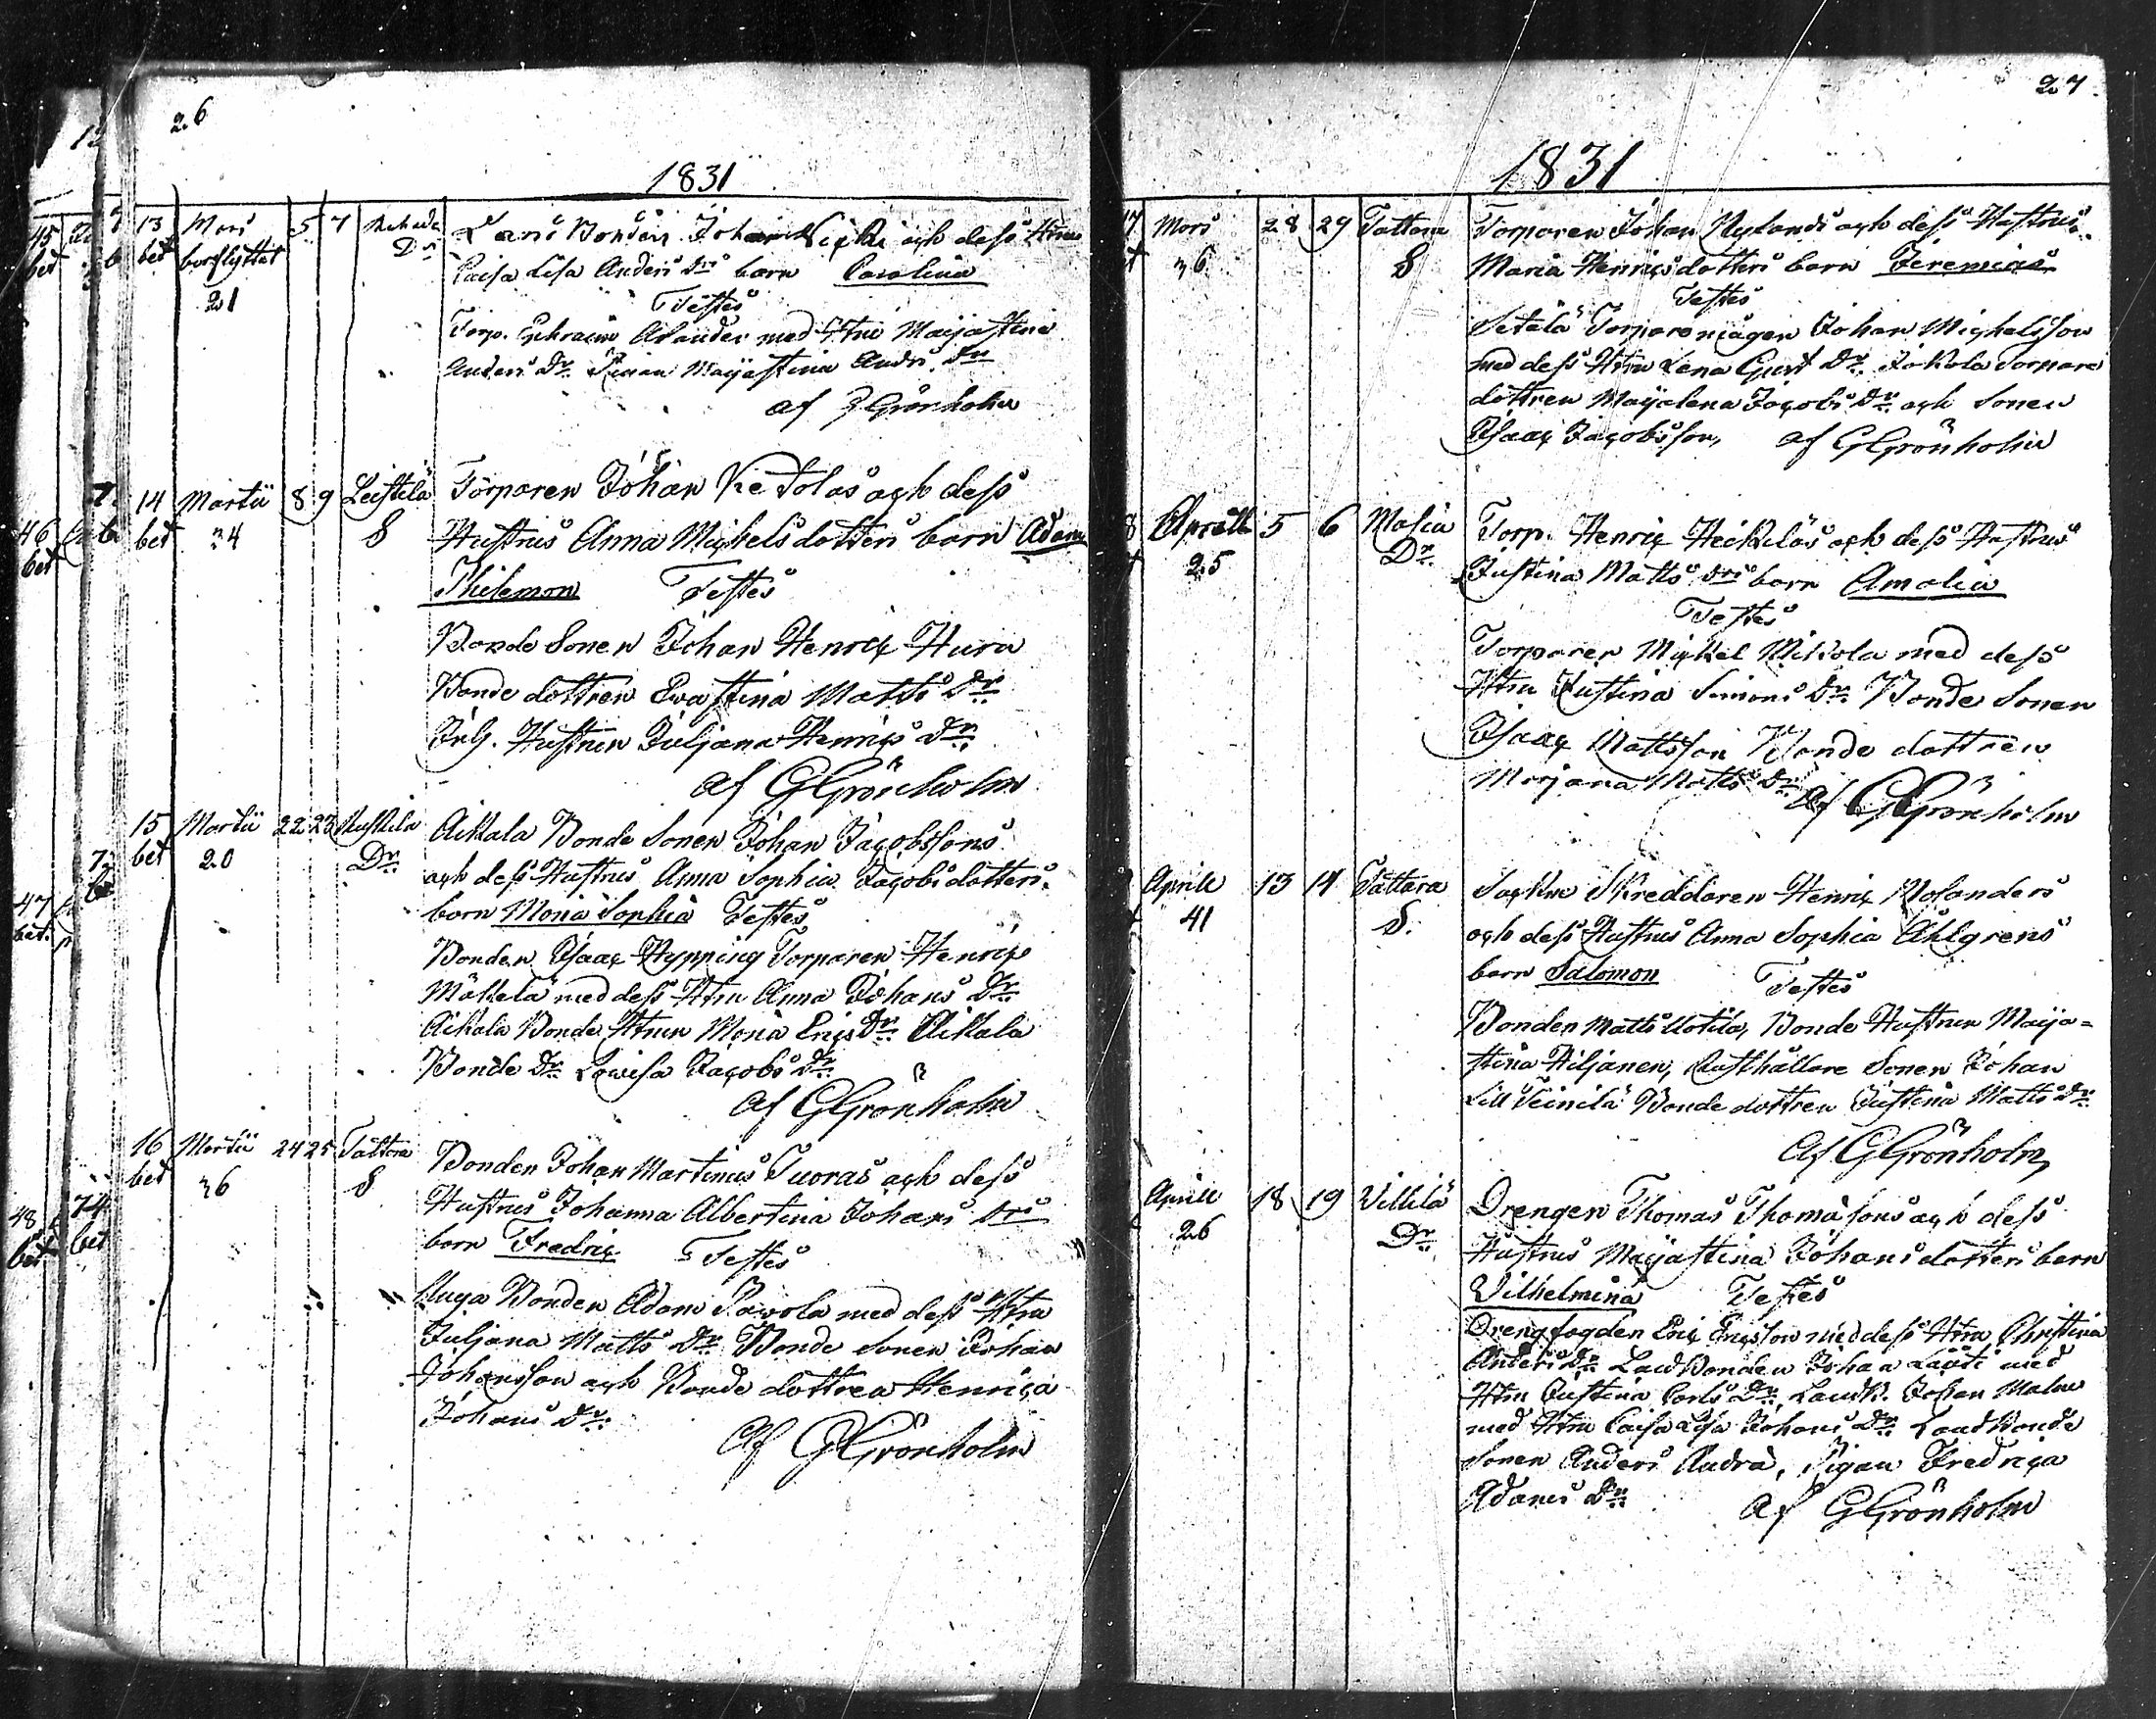 26
1831
13 Mars 5 7
bet bortflyttat Dr
21
Bonden Johan och dess Hustrus
Caisa Lisa Anders Drs barn Carolina
Testes
Torp. Ephraim med Htru Maijastina
Anders Dr Pigan Maijastina Anders Dr
af GGrönholm
14 Martii 8 9 Leistilä Torparen Johan Ketolas och dess
bet 34 S Hustrus Anna Michelsdotters barn Adam
Philemon Testes
Bonde Sonen Johan Henric Hura
Bonde dottren Evastina Matts Dr
Inh. Hustrun Juljana Henrics Dr
af GGrönholm
15 Martii 22 23 Ruskila Aikala Bonde Sonen Johan Jacobssons
bet 20 Dr och dess Hustrus Anna Sophia Jacobsdotters
barn Maria Sophia Testes
Bonden Isaac Hypping Torparen Henric
Mäkelä med dess Htru Anna Johans Dr
Aikala Bonde Htrun Maria Erics Dr Aikala
Bonde Dr Lovisa Jacobs Dr
af GGrönholm
16 Martii 24 25 Tattara Bonden Johan Martinus Tuoras och dess
bet 36 S Hustrus Johanna Albertina Johans Drs
barn Fredric Testes
Bonden Adam Pavola med dess Htru
Juljana Matts Dr Bonde Sonen Johan
Johansson och Bonde dottren Henrica
Johans Dr
Af GGrönholm
45 bet
46 bet
47 bet
48 bet
27
1831
17 Mars 28 29 Tattara Torparen Johan Nylands och dess Hustrus
36 S Maria Henricsdotters barn Jeremias
Testes
Setälä Torparemågen Johan Michelsson
med dess Htru Lena Gust Dr Jokola Torpare
dottren Maijalena Jacobs Dr och Sonen
Isaac Jacobsson, af GGrönholm
Aprill 5 6 Malia Torp. Henric Heikiläs och dess Hustrus
25 Dr Justina Matts Drs barn Amalia
Testes
Torparen Michel Mikola med dess
Htru Justina Simons Dr Bonde Sonen
Isaac Mattsson Bonde dottren
Marjana Matts Dr Af GGrönholm
Aprill 13 14 Tattara Sockne Skreddaren Henric Molanders
41 S. och dess Hustrus Anna Sophia Åhlgrens
barn Salomon Testes
Bonden Matts Uotila, Bonde Hustrun Maija=
stina Hiljanen, Rusthållare Sonen Johan
Lill Teinilä Bonde dottren Justina Matts Dr
Af GGrönholm
Aprill 18 19 Villilä Drengen Thomas Thomassons och dess
26 Dr Hustrus Maijastina Johansdotters barn
Wilhelmina Testes
Drengfogden Eric Ericsson med dess Htru Christina
Anders Dr Landbonden Johan med
Htru Justina Carls Dr, Landb. Johan Malm
med Htru Caisa Lisa Johans Dr Landbonde
Sonen Anders Andra, Pigan Fredrica
Adams Dr af GGrönholm